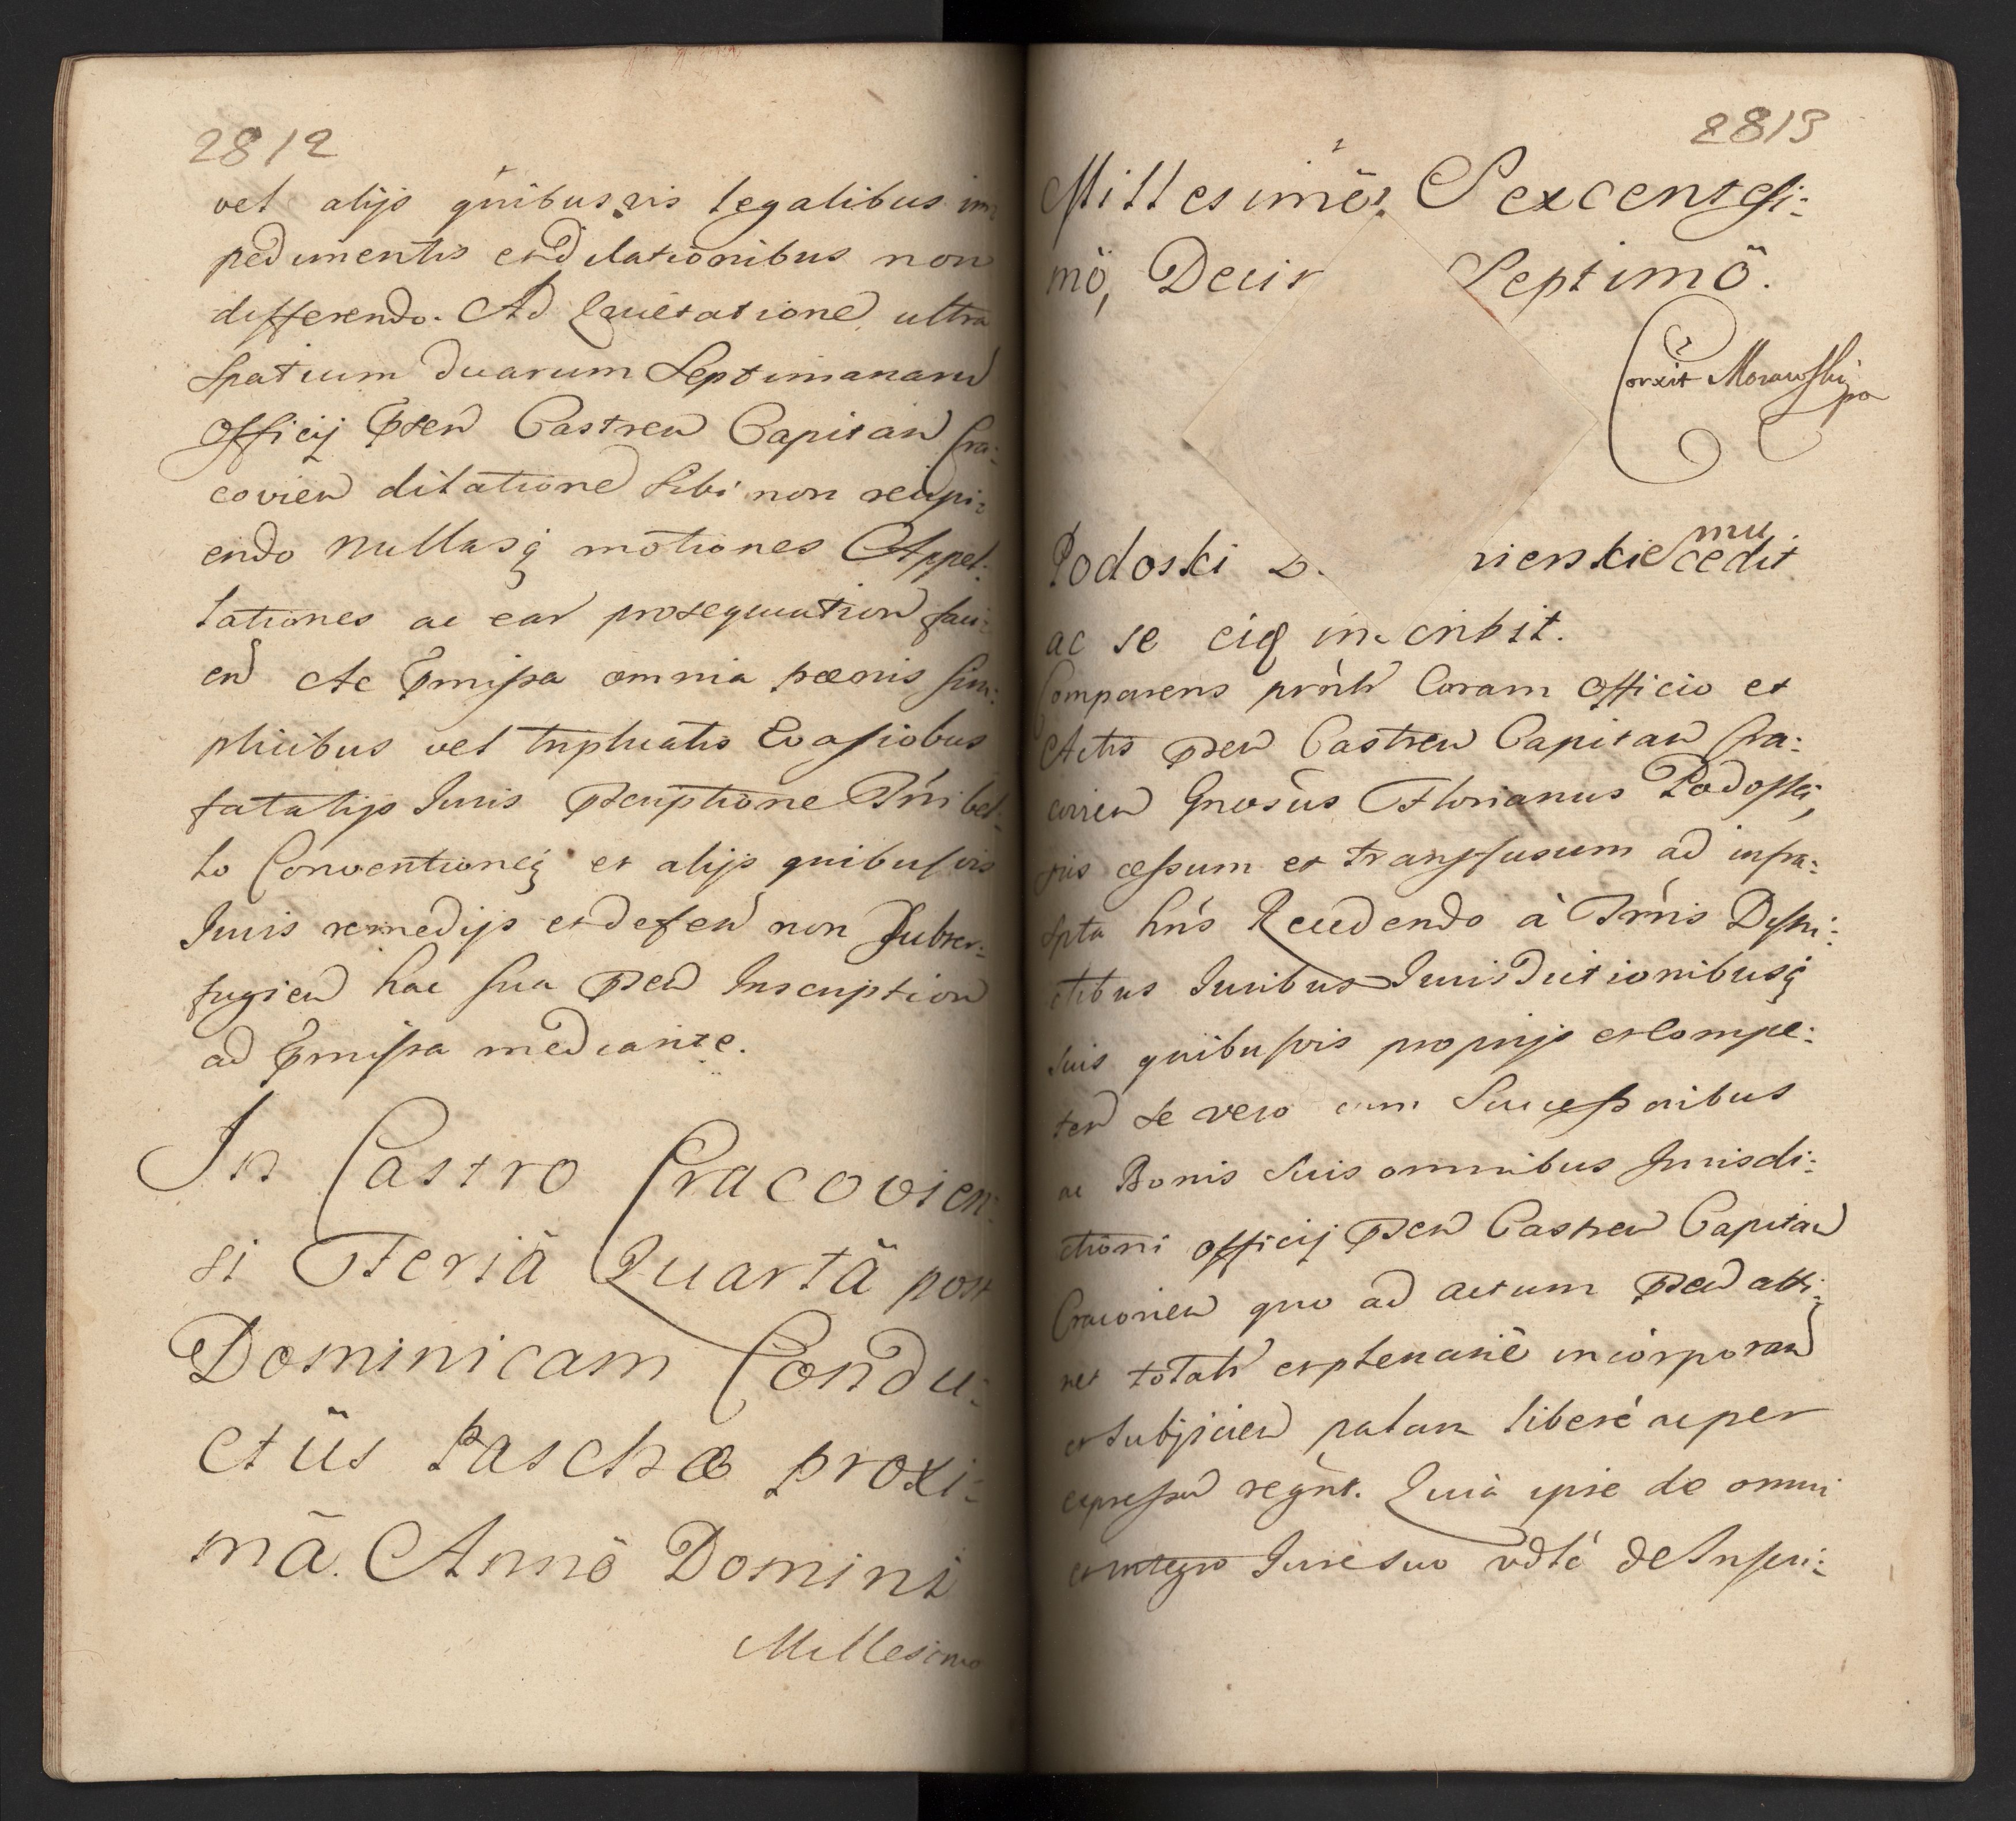 2812
vel alijs quibusvis legalibus im
pedimentis et dilationibus non
differendo. Ad Quietatione ultra
Spatium duarum Septimanaru
Officij Pten Castren Capitan Cra:
covien dilatione Sibi non recipi:
endo nullasq motiones Appel:
lationes ac ear prosequution faci:
en Ac Pmissa omnia pœnis sim:
plicibus vel triplicatis Evasiobus
fatalijs Juris Pscriptione Trii bel:
lo Conventioneq et alijs quibusvis
Juris remedijs et defen non Subter:
fugien hac sua Pten Inscription
ad Pmissa mediante.
In Castro Cracovien:
si Feriâ Quartâ post
Dominicam Condu:
ctûs Paschæ proxi:
mâ. Annô Domini
Millesimo
2813
Millesimô Sexcentesi:
mô, Deci Septimô.
Corxit Morawski
Podoski vierskiemu cedit
ac se eiq inscribit.
Comparens prsnlr Coram Officio et
Actis Pten Castren Capitan Cra:
covien Gnosus Florianus Podoski,
suis cessum et transfusum ad infra:
spta hns Recedendo à Trris Distri:
ctibus Juribus Jurisdictionibusq
suis quibusvis proprijs et Compe:
ten se vero cum Successoribus
ac Bonis Suis omnibus Jurisdi:
ctioni Officij Pten Castren Capitan
Cracovien quo ad actum Pten atti:
net totalr et plenarie incorporan
et Subjicien palam liberè ac per
expressu regnt. Quia ipse de omni
et integro Jure suo vdlt de Inscri: